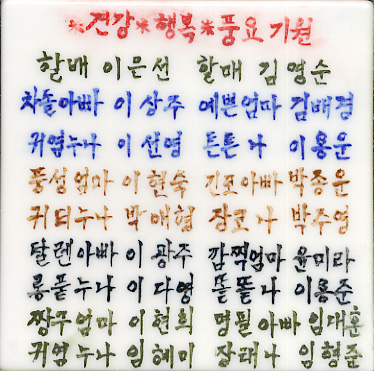 *건강*행복*풍요 기원
할매 이은선 할매 김영순
차돌아빠 이상주 예쁜엄마 김배경
귀염누나 이선영 튼튼나 이용운
풍성엄마 이현숙 긴코아빠 박종운
귀티누나 박애형 장코나 박주영
탈렌아빠 이광주 깜찍엄마 윤미라
롱풑누나 이다영 똘똘나 이룡준
짱구엄마 이현희 명필아빠 임대훈
귀염누나 임혜미 장태나 임형준